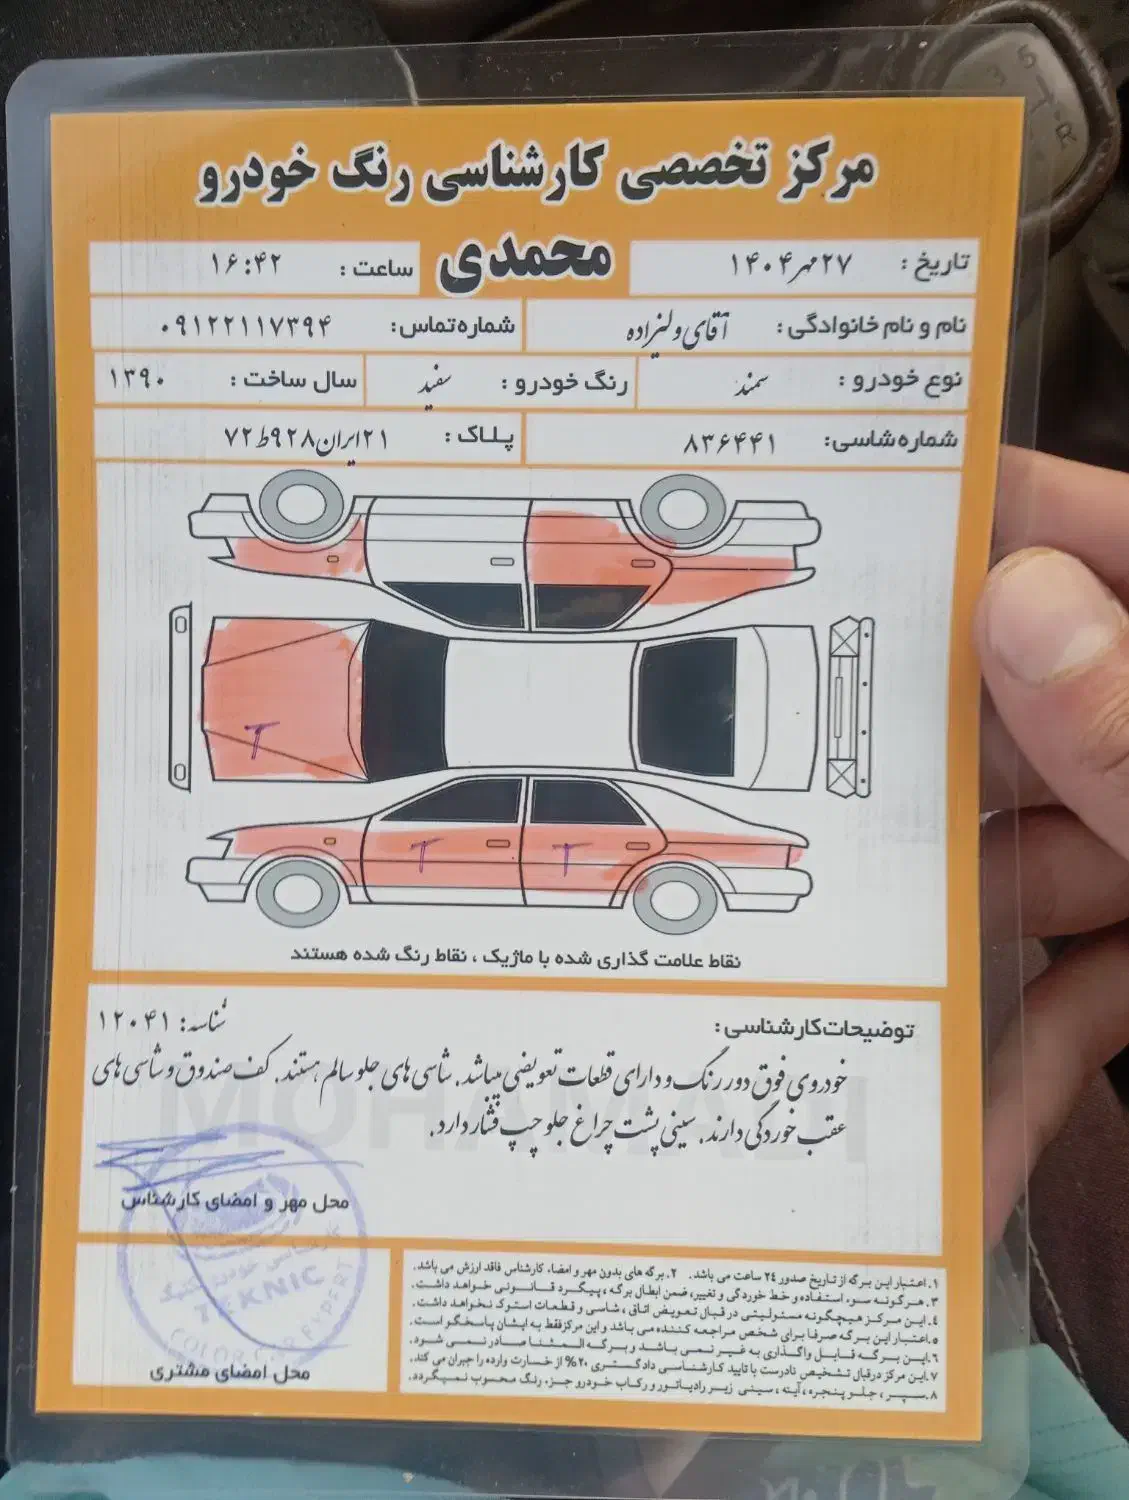 مرکز تخصصی کارشناسی رنگ خودرو
محمدی
تاریخ : ۲۷ مهر ۱۴۰۴
ساعت : ۱۶:۴۲
نام و نام خانوادگی: آقای ولیزاده
شماره تماس: ۰۹۱۲۲۱۱۷۳۹۴
نوع خودرو : سمند
رنگ خودرو : سفید
سال ساخت : ۱۳۹۰
شماره شاسی: ۸۳۶۴۴۱
پلاک : ۲۱ایران۹۲۸ط۷۲
T
T T
نقاط علامت گذاری شده با ماژیک ، نقاط رنگ شده هستند
توضیحات کارشناسی :
شناسه: ۱۲۰۴۱
خودروی فوق دور رنگ و دارای قطعات تعویضی میباشد. شاسی های جلو سالم هستند. کف صندوق و شاسی های
عقب خوردگی دارند. سینی پشت چراغ جلو چپ فشار دارد.
محل مهر و امضای کارشناس
کارشناسی خودرو تکنیک
TEKNIC
COLOR CAR EXPERT
محل امضای مشتری
۱.اعتبار این برگه از تاریخ صدور ۲۴ ساعت می باشد. ۲.برگه های بدون مهر و امضاء کارشناس فاقد ارزش می باشد.
۳.هرگونه سوء استفاده و خط خوردگی و تغییر، ضمن ابطال برگه ، پیگرد قانونی خواهد داشت.
۴.این مرکز هیچگونه مسئولیتی در قبال تعویض اتاق ، شاسی و قطعات استوک نخواهد داشت.
۵.اعتبار این برگه صرفا برای شخص مراجعه کننده می باشد و این مرکز فقط به ایشان پاسخگو است.
۶.این برگه قابل واگذاری به غیر نمی باشد و برگه المثنا صادر نمی شود.
۷.این مرکز در قبال تشخیص نادرست با تایید کارشناسی دادگستری ۲۰% از خسارت وارده را جبران می کند.
۸.سپر ، جلو پنجره ، آینه ، سینی زیر رادیاتور و رکاب خودرو جزء رنگ محسوب نمیگردد.